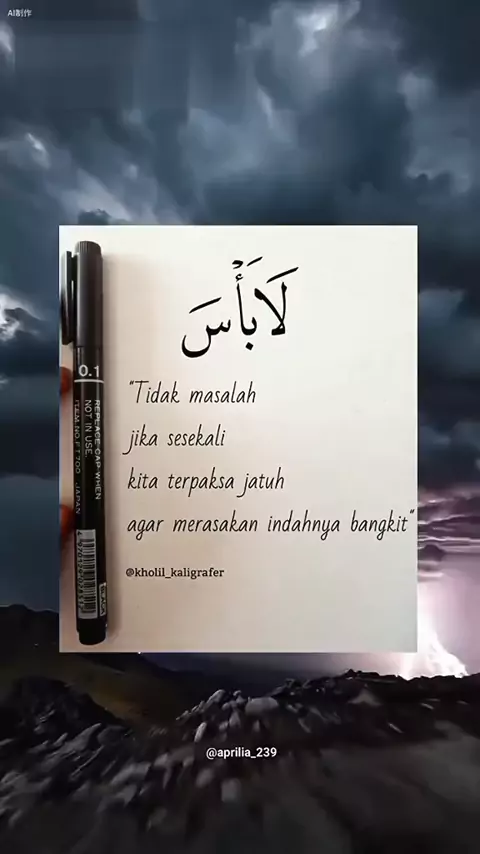 AI制作
لَا بَأْسَ
0.1
REPLACE CAP WHEN
NOT IN USE.
JAPAN
"Tidak masalah
jika sesekali
kita terpaksa jatuh
agar merasakan indahnya bangkit"
@kholil_kaligrafer
@aprilia_239